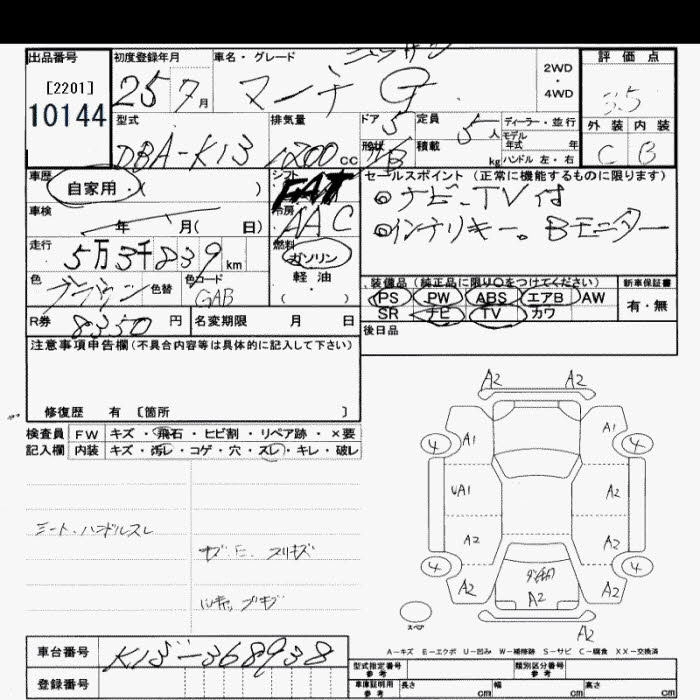 出品番号
[2201]
10144
初度登録年月
25 7月
車名・グレード
ニッサン
マーチ G
2WD
・
4WD
評価点
3.5
外装 内装
C B
型式
DBA-K13
排気量
1200cc
ドア 5
形状
定員 5人
積載 kg
ディーラー・並行
モデル年式 年
ハンドル 左・右
車歴
自家用・( )
車検
年 月( 日)
走行
5万3千839km
色
ブラウン
色替
色コード
GAB
シフト
FAT
冷房
AAC
燃料
ガソリン
軽・油
( )
セールスポイント (正常に機能するものに限ります)
◎ナビ、TV付
◎インテリキー。Bモニター
装備品 (純正品に限り○をつけてください)
PS PW ABS エアB AW
SR ナビ TV カワ
新車保証書
有・無
後日品
R券 8350円
名変期限 月 日
注意事項申告欄(不具合内容等は具体的に記入して下さい)
修復歴 有 [箇所 ]
検査員 FW キズ・飛石・ヒビ割・リペア跡・×要
記入欄 内装 キズ・汚レ・コゲ・穴・スレ・キレ・破レ
シート・ハンドルスレ
A2 A2
4 A1 A1 4
UA1 A2
A2 A2
4 A2 A2 4
A2
スペア
A2
A-キズ E-エクボ U-凹み W-補修跡 S-サビ C-腐食 XX-交換済
車台番号 K13-368938
登録番号
型式指定番号
参考
類別区分番号
参考
車庫証明用
参考
長さ cm 幅 cm 高さ cm